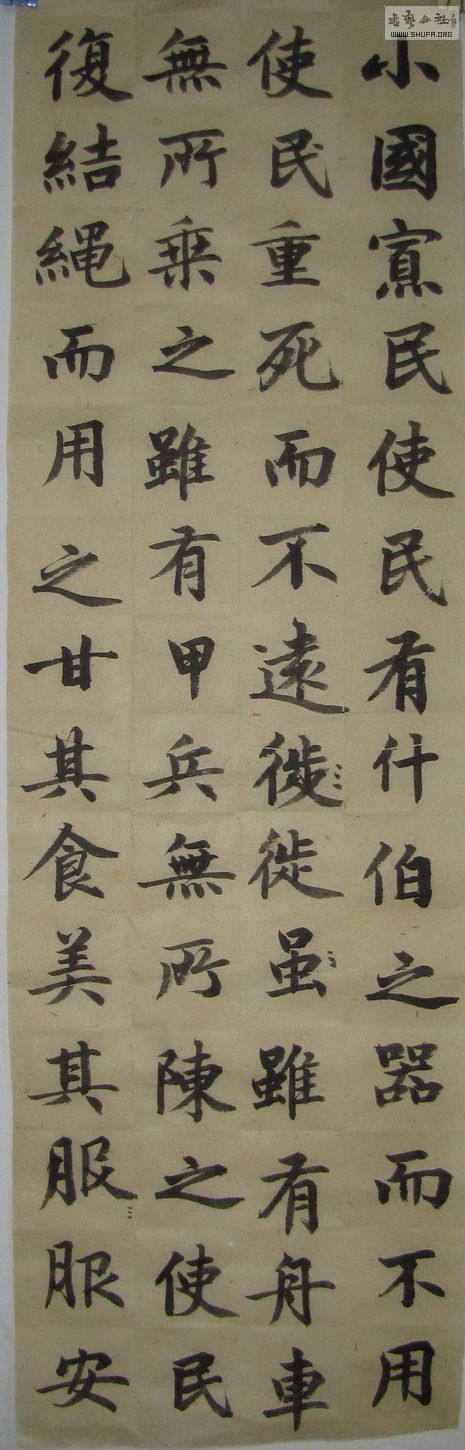 小國寡民使民有什伯之器而不用
使民重死而不遠徙徙虽雖有舟車
無所乘之雖有甲兵無所陳之使民
復結繩而用之甘其食美其服服安
WWW.SHUFA.ORG